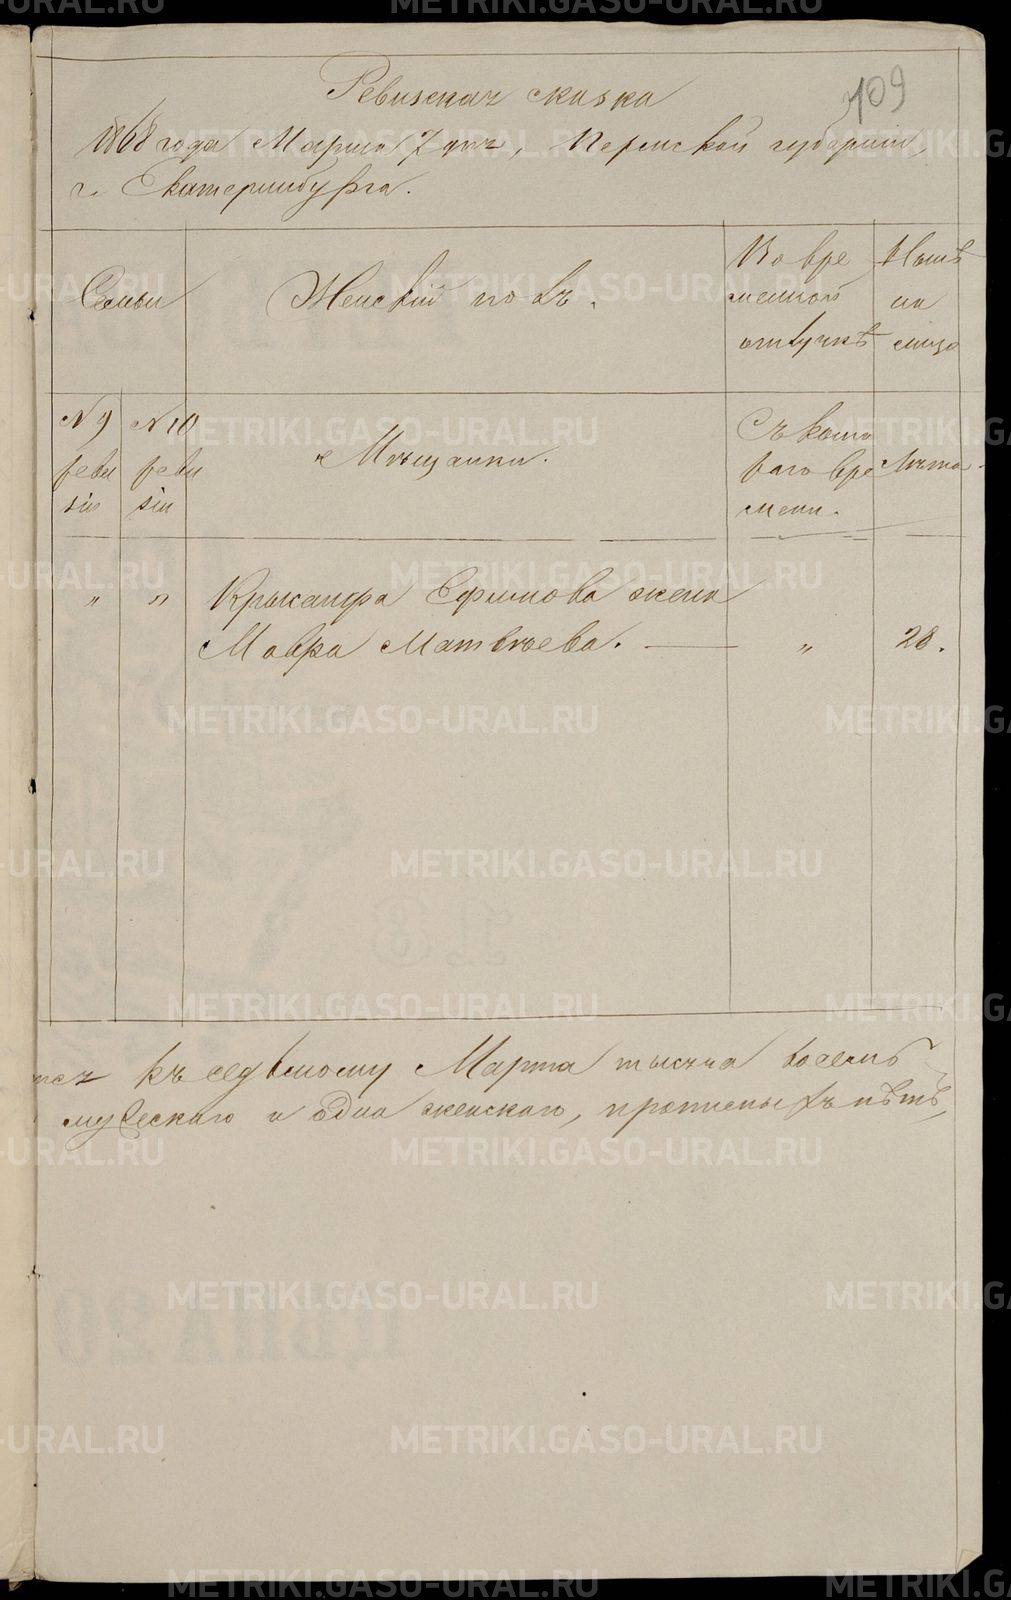 109
Ревизская сказка
1868 года Марта 7 дня, Пермской губернiи,
г. Екатеринбурга.
Семьи
Женскiй полъ.
Во вре
менной
отлучкѣ
Нынѣ
на
лицо
N 9
реви
зiи
N 10
реви
зiи
Мѣщанки.
Съ кото
раго вре
мени.
Лѣта.
" " Крысанфа Ефимова жена
Мавра Матвѣева. — " 28.
къ седьмому Марта тысяча восемь
мужескаго и одна женскаго, прописныхъ нѣтъ,
METRIKI.GASO-URAL.RU
ЦѢНА 20